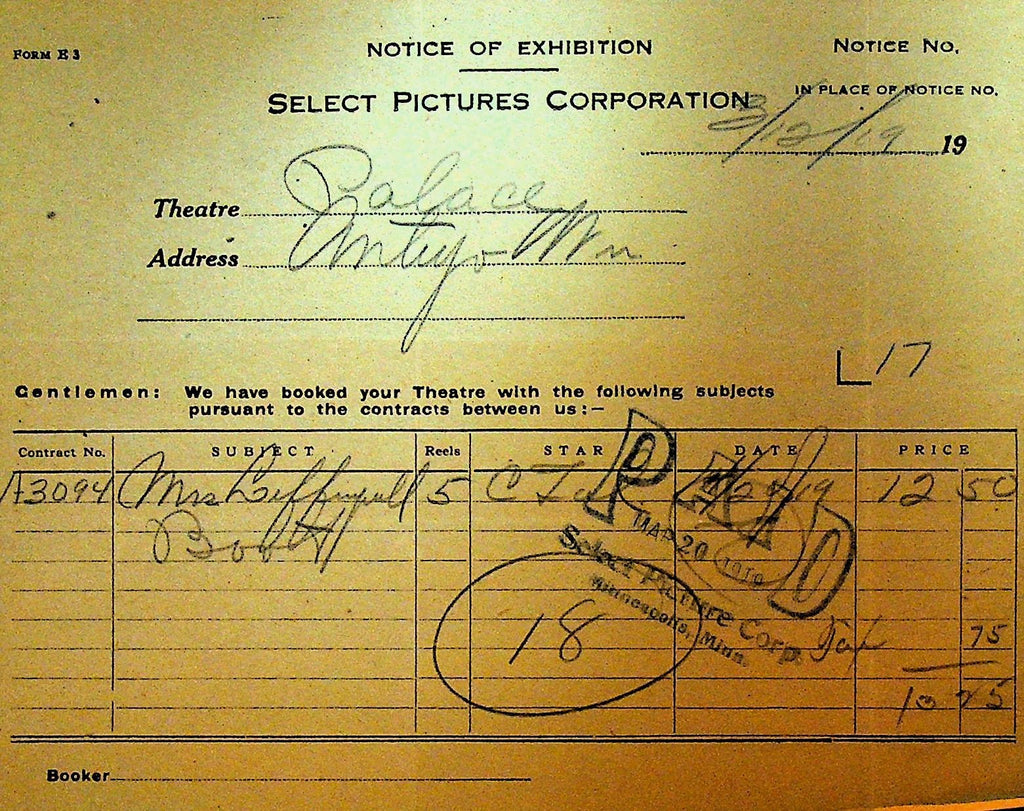 FORM E 3
NOTICE OF EXHIBITION
NOTICE NO.
SELECT PICTURES CORPORATION
IN PLACE OF NOTICE NO.
3/12/19 19
Theatre Palace
Address
L17
Gentlemen: We have booked your Theatre with the following subjects
pursuant to the contracts between us:—
Contract No. SUBJECT Reels STAR DATE PRICE
A3094 Mrs Leffingwell 5 C 3/20/19 12 50
Boots
PAID
MAR 20 1919
Select Picture Corp.
Minneapolis, Minn.
18
Tax 75
75
Booker